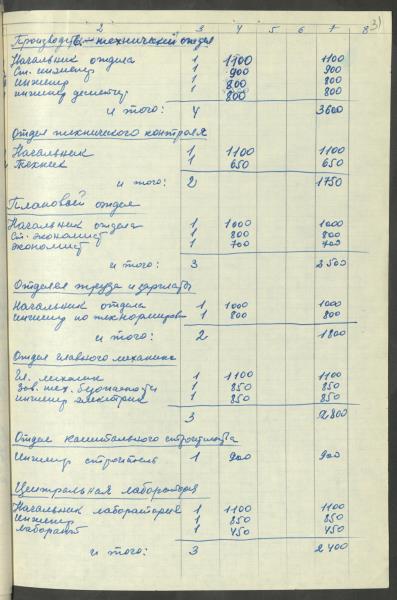 2 3 4 5 6 7 8
31
Производств.-технический отдел
Начальник отдела 1 1100 1100
Ст. инженер 1 900 900
инженер 1 800 800
инженер диспетчер 1 800 800
и того: 4 3600
Отдел технического контроля
Начальник 1 1100 1100
Техник 1 650 650
и того: 2 1750
Плановой отдел
Начальник отдела 1 1000 1000
Ст. экономист 1 800 800
экономист 1 700 700
и того: 3 2500
Отдел труда и зарплаты
Начальник отдела 1 1000 1000
инженер по технормиров 1 800 800
и того: 2 1800
Отдел главного механика
Гл. механик 1 1100 1100
Зав. тех. безопасности 1 850 850
инженер электрик 1 850 850
3 2800
Отдел капитального строительства
Инженер строитель 1 900 900
Центральная лаборатория
Начальник лаборатории 1 1100 1100
инженер 1 850 850
лаборант 1 450 450
и того: 3 2400